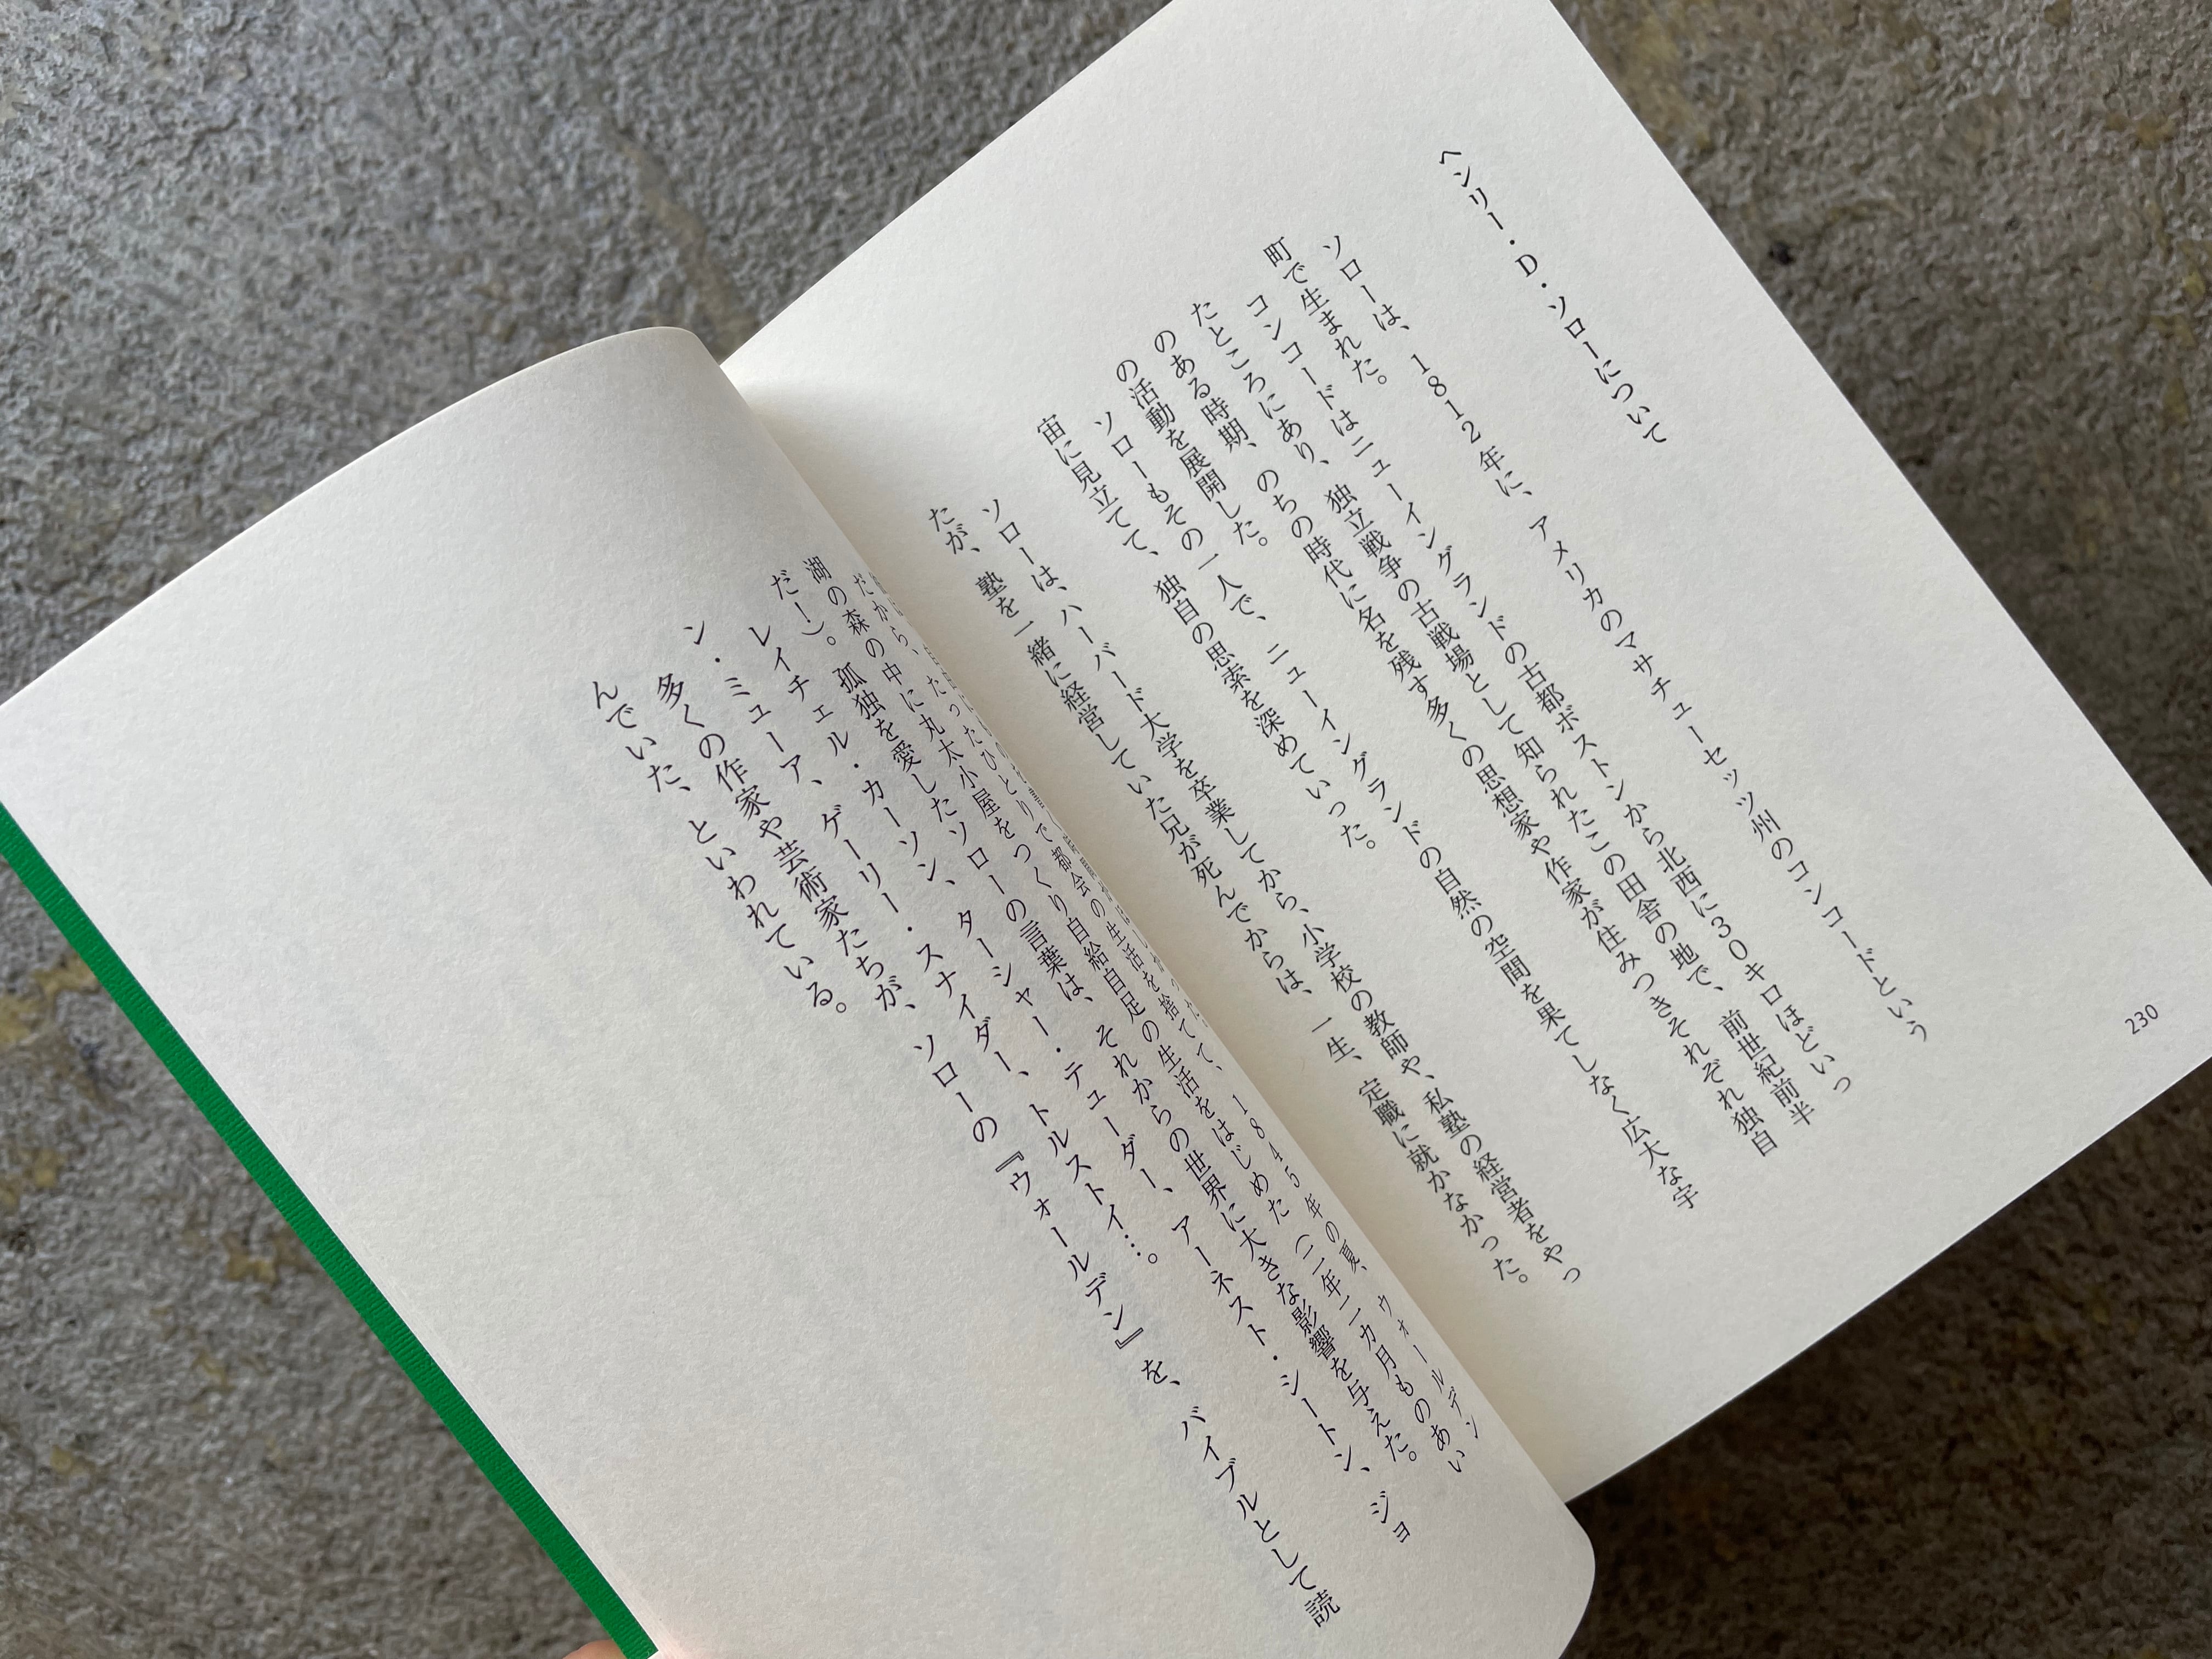 ヘンリー・D・ソローについて
ソローは、1812年に、アメリカのマサチューセッツ州のコンコードという
町で生まれた。
コンコードはニューイングランドの古都ボストンから北西に30キロほどいっ
たところにあり、独立戦争の古戦場として知られたこの田舎の地で、前世紀前半
のある時期、のちの時代に名を残す多くの思想家や作家が住みつきそれぞれ独自
の活動を展開した。
ソローもその一人で、ニューイングランドの自然の空間を果てしなく広大な宇
宙に見立てて、独自の思索を深めていった。
ソローは、ハーバード大学を卒業してから、小学校の教師や、私塾の経営者をやっ
たが、塾を一緒に経営していた兄が死んでからは、一生、定職に就かなかった。
230
だから、たったひとりで都会の生活を捨てて、1845年の夏、ウォールデン
湖の森の中に丸太小屋をつくり自給自足の生活をはじめた（二年二カ月ものあい
だ！）。孤独を愛したソローの言葉は、それからの世界に大きな影響を与えた。
レイチェル・カーソン、ターシャー・テューダー、アーネスト・シートン、ジョ
ン・ミューア、ゲーリー・スナイダー、トルストイ…。
多くの作家や芸術家たちが、ソローの『ウォールデン』を、バイブルとして読
んでいた、といわれている。